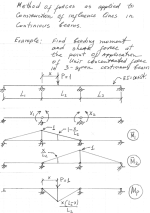 Method of forces as applied to
Construction of influence lines in
Continuous beams.
Example: Find bending moment
and shear force at
the point of application
of Unit concentrated force
in 3-span continuous beam
x P=1
EI-const.
L₁ L₂ L₃
X₁ X₂
M̄₁
M̄₂
x P=1
Mp
L₂